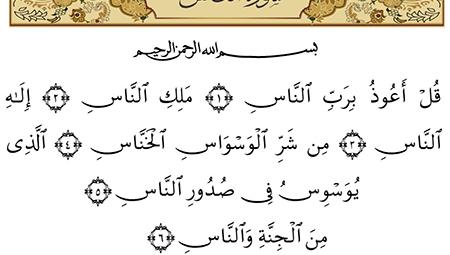 بسم الله الرحمن الرحيم
قُلْ أَعُوذُ بِرَبِّ ٱلنَّاسِ ﴿١﴾ مَلِكِ ٱلنَّاسِ ﴿٢﴾ إِلَٰهِ
ٱلنَّاسِ ﴿٣﴾ مِن شَرِّ ٱلْوَسْوَاسِ ٱلْخَنَّاسِ ﴿٤﴾ ٱلَّذِى
يُوَسْوِسُ فِى صُدُورِ ٱلنَّاسِ ﴿٥﴾
مِنَ ٱلْجِنَّةِ وَٱلنَّاسِ ﴿٦﴾